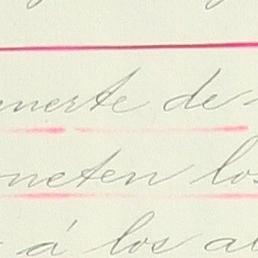 muerte de
meten los
á los al